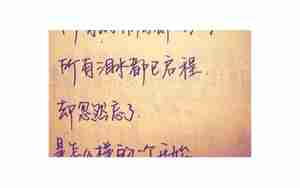 所有泪水都已启程
却忽然忘了
是怎么样的一个开始